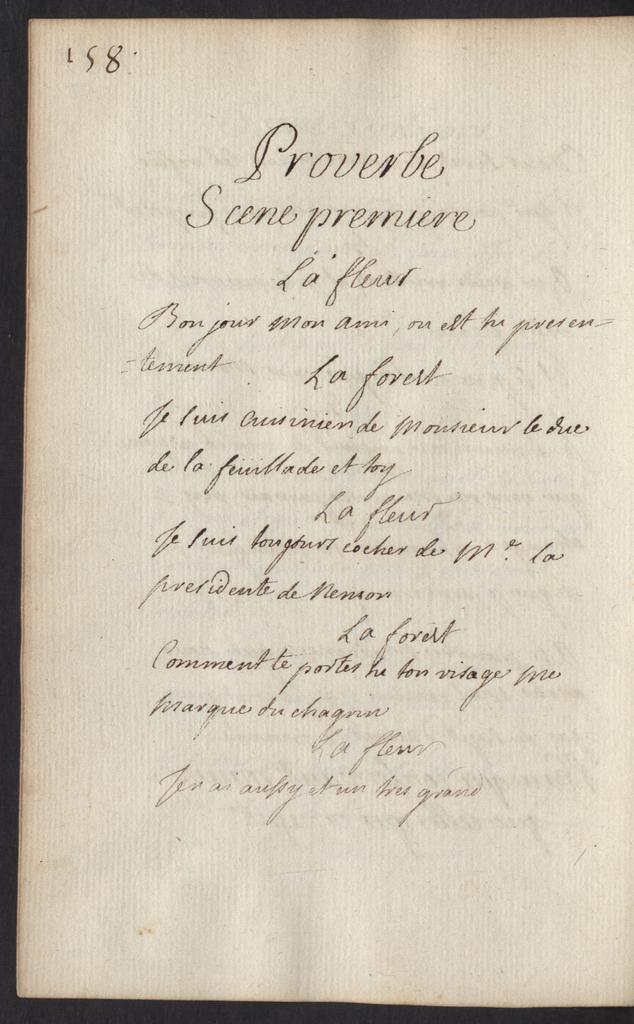 158.
Proverbe
Scene premiere
La fleur
Bonjour mon ami, ou est tu presen=
=tement
La forest
Je suis cuisinier de Monsieur le duc
de la feuillade et toy
La fleur
Je suis toujours cocher de Me. la
presidente de
La forest
Comment te portes tu ton visage me
marque du chagrin
La fleur
J'en ai aussy et un tres grand